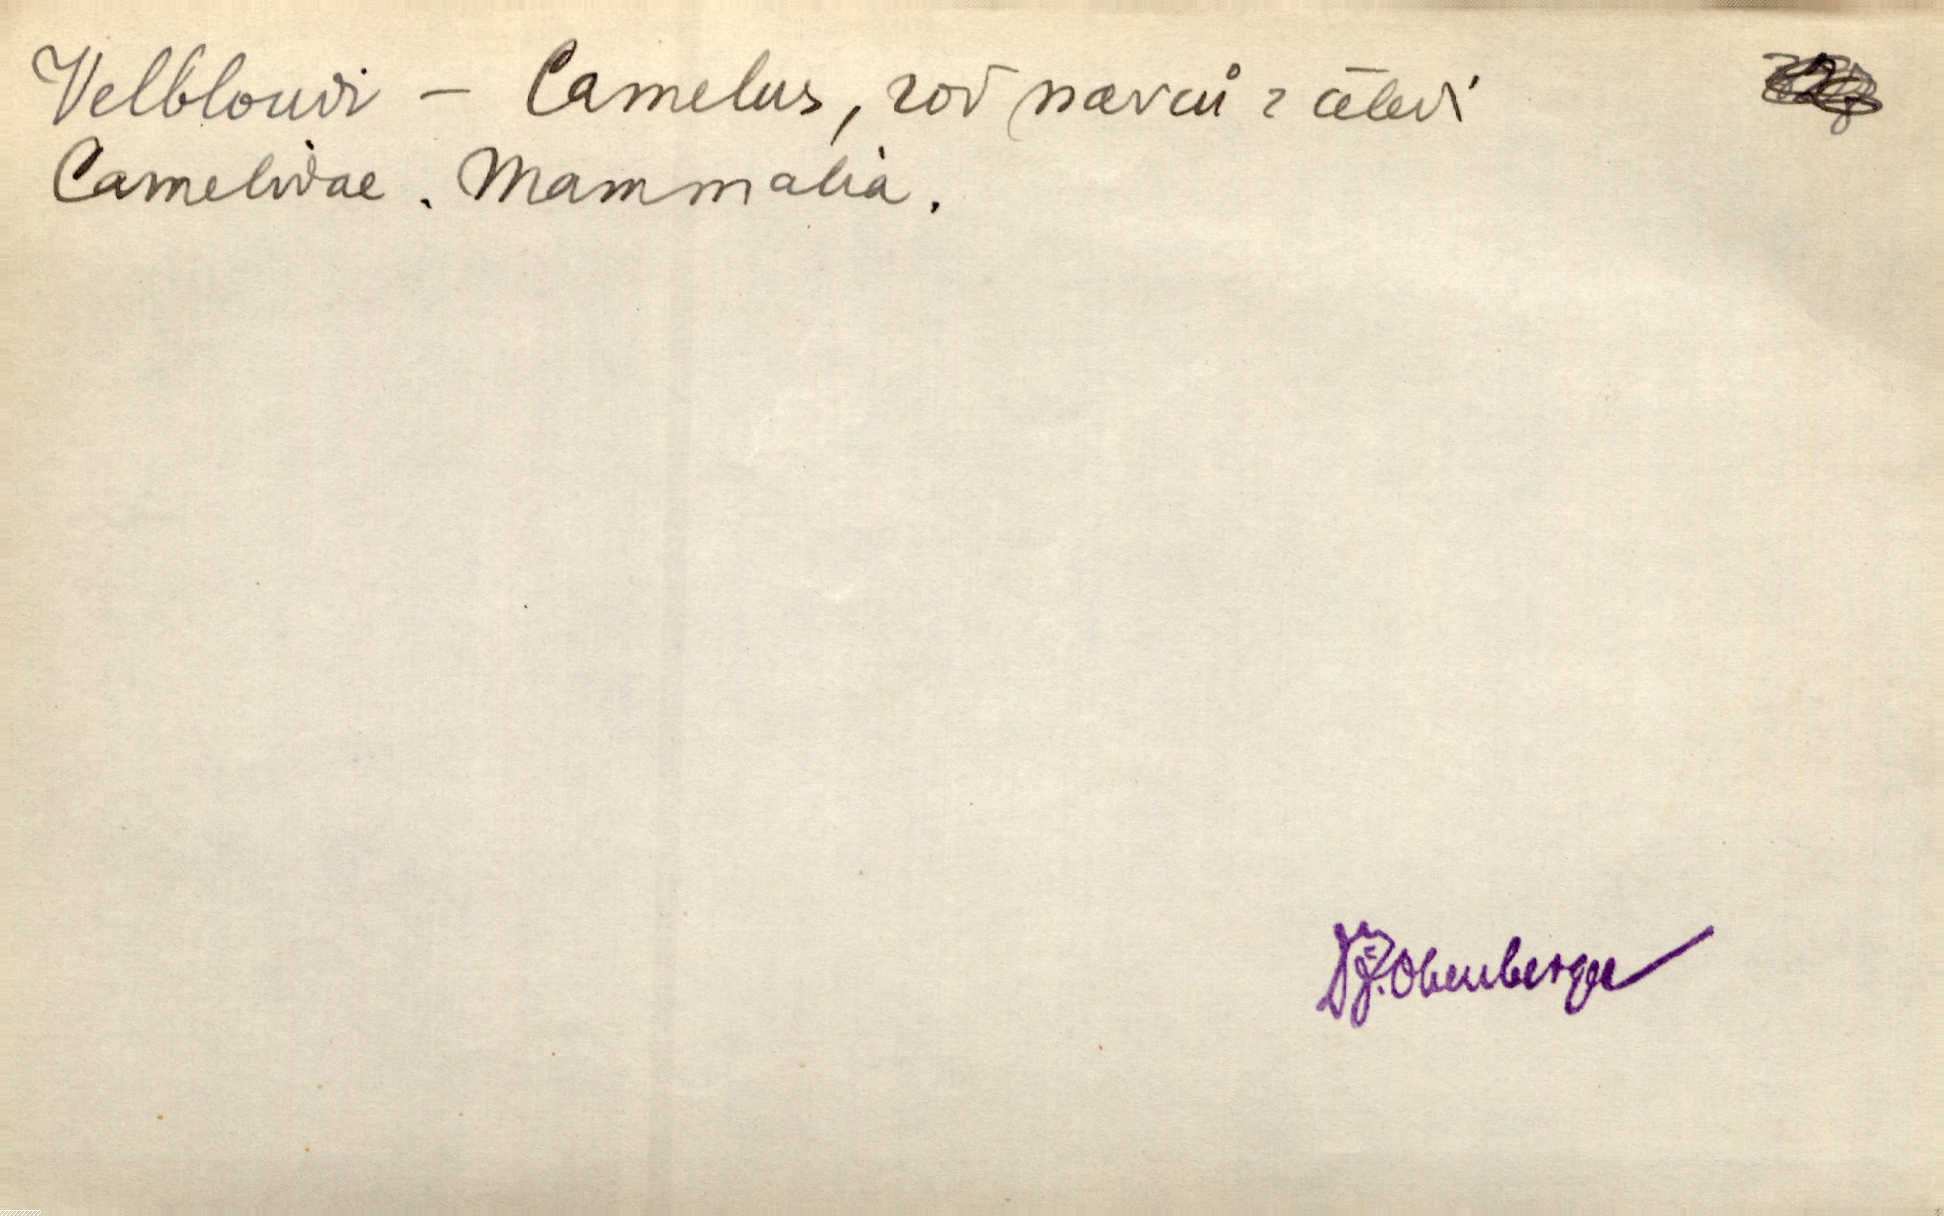 Velbloudi – Camelus, rod savců z čeledi
Camelidae. Mammalia.
Dr J. Obenberger